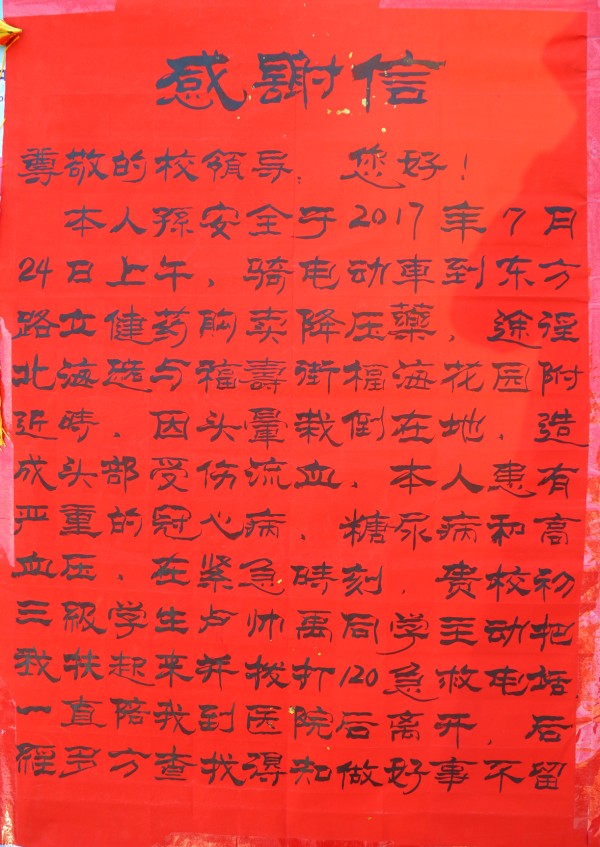 感謝信
尊敬的校领导：您好！
本人孫安全于2017年7月
24日上午，骑电动車到东方
路立健药购卖降压藥，途迳
北海路与福壽街福海花园附
近時，因头暈栽倒在地，造
成头部受伤流血，本人患有
严重的冠心病，糖尿病和高
血压，在紧急時刻，贵校初
三級学生卢帅禹同学主动把
我扶起来并拨打120急救电话
一直陪我到医院后离开，后
經多方查找得知做好事不留